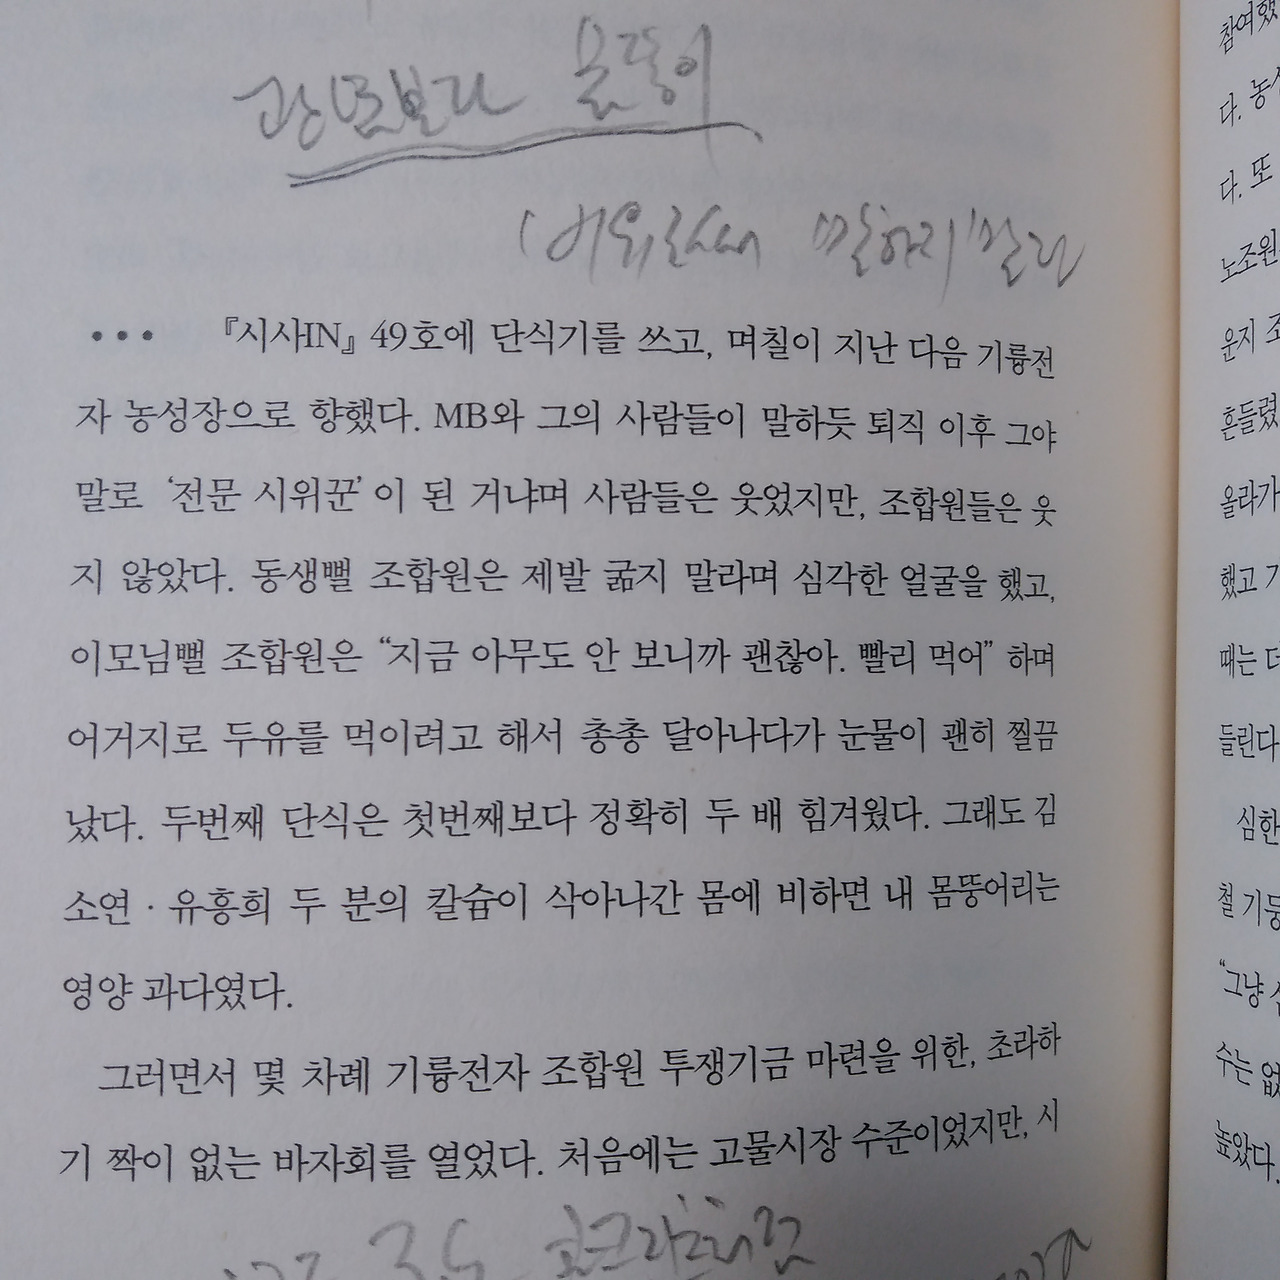 『시사IN』 49호에 단식기를 쓰고, 며칠이 지난 다음 기륭전
자 농성장으로 향했다. MB와 그의 사람들이 말하듯 퇴직 이후 그야
말로 ‘전문 시위꾼’이 된 거냐며 사람들은 웃었지만, 조합원들은 웃
지 않았다. 동생뻘 조합원은 제발 굶지 말라며 심각한 얼굴을 했고,
이모님뻘 조합원은 “지금 아무도 안 보니까 괜찮아. 빨리 먹어” 하며
어거지로 두유를 먹이려고 해서 총총 달아나다가 눈물이 괜히 찔끔
났다. 두번째 단식은 첫번째보다 정확히 두 배 힘겨웠다. 그래도 김
소연 · 유흥희 두 분의 칼슘이 삭아나간 몸에 비하면 내 몸뚱어리는
영양 과다였다.
그러면서 몇 차례 기륭전자 조합원 투쟁기금 마련을 위한, 초라하
기 짝이 없는 바자회를 열었다. 처음에는 고물시장 수준이었지만, 시
참여했
다. 농성
다. 또
노조원
운지 조
흔들렸
올라가
했고 기
때는 더
들린다
심한
철 기둥
“그냥
수는 없
높았다.